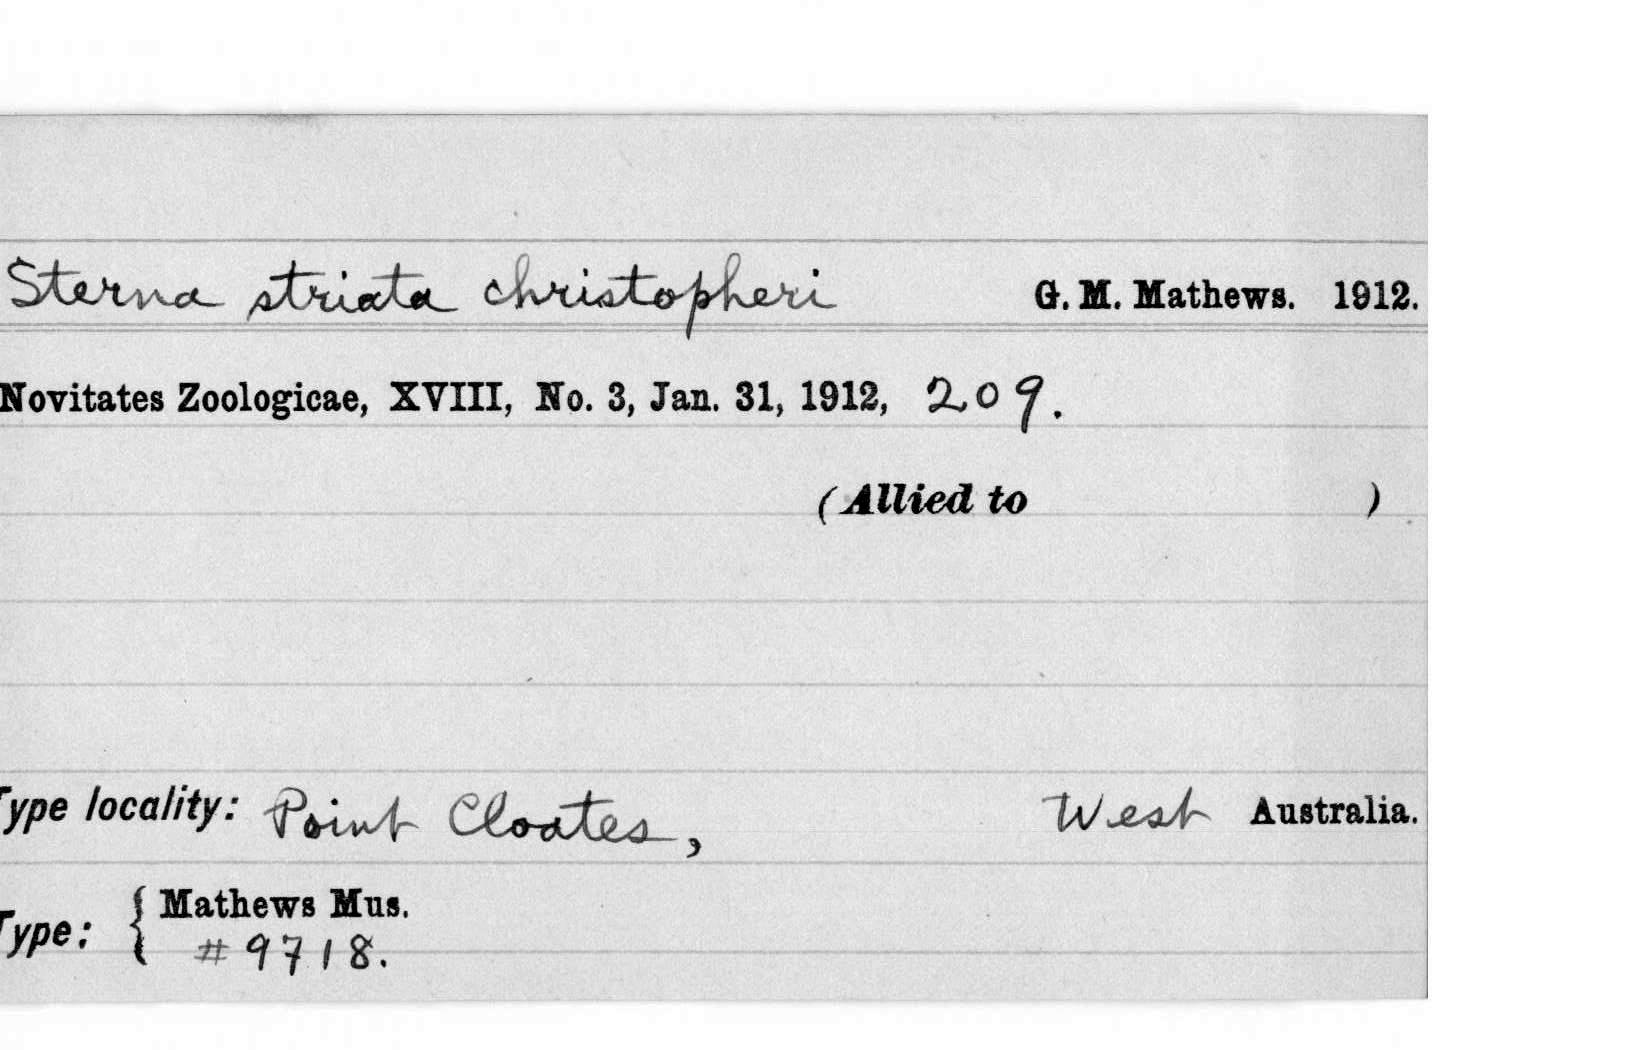 Sterna striata christopheri G. M. Mathews. 1912.
Novitates Zoologicae, XVIII, No. 3, Jan. 31, 1912, 209.
(Allied to )
Type locality: Point Cloates, West Australia.
Type: { Mathews Mus.
#9718.